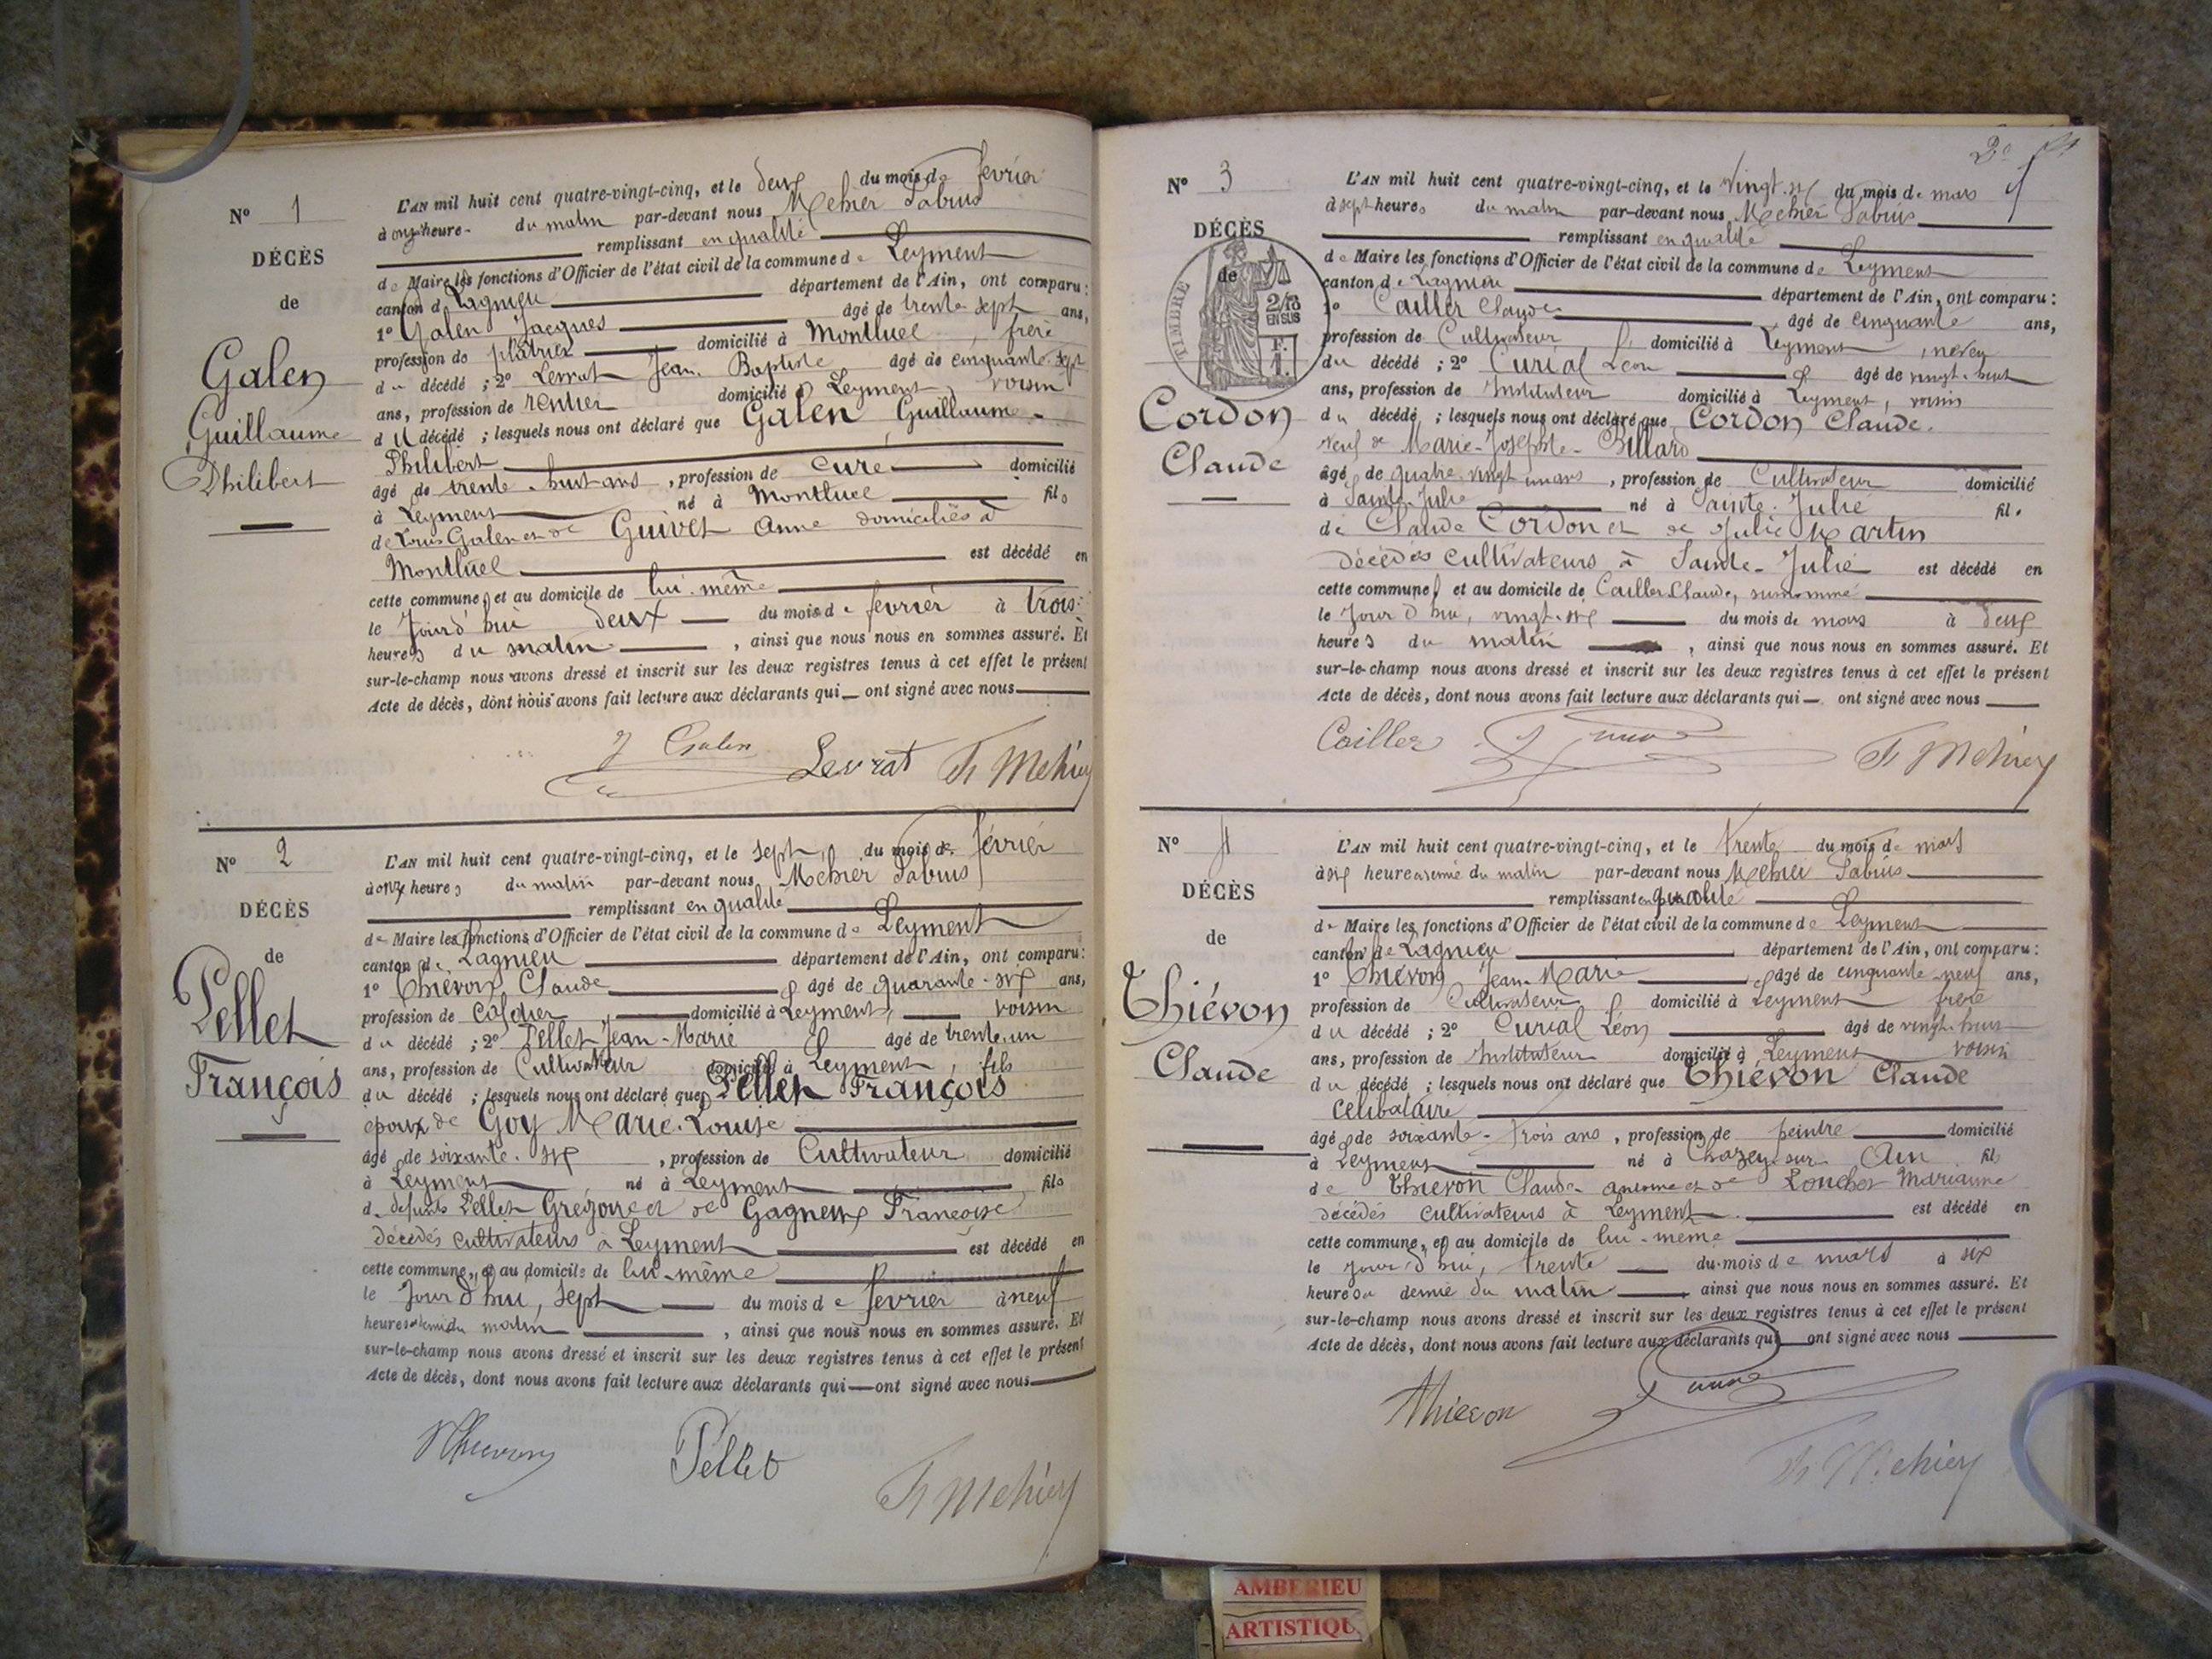 N° 1
DÉCÈS
de
Galen
Guillaume
Philibert
L'AN mil huit cent quatre-vingt-cinq, et le deux du mois de février
à onze heures du matin par-devant nous Mehier Fabius
remplissant en qualité
de Maire les fonctions d'Officier de l'état civil de la commune de Leyment
canton de Lagnieu département de l'Ain, ont comparu:
1° Galen Jacques âgé de trente-sept ans,
profession de plâtrier domicilié à Montluel frère
du décédé ; 2° Levrat Jean-Baptiste âgé de cinquante-sept
ans, profession de rentier domicilié à Leyment, voisin
du décédé ; lesquels nous ont déclaré que Galen Guillaume-
Philibert
âgé de trente-huit ans, profession de curé domicilié
à Leyment né à Montluel fils
de Louis Galen et de Guivet Anne domiciliés à
Montluel est décédé en
cette commune, et au domicile de lui-même
le Jourd'hui deux du mois de février à trois
heures du matin, ainsi que nous nous en sommes assuré. Et
sur-le-champ nous avons dressé et inscrit sur les deux registres tenus à cet effet le présent
Acte de décès, dont nous avons fait lecture aux déclarants qui ont signé avec nous
J Galen Levrat F. Mehier
N° 2
DÉCÈS
de
Pellet
François
L'AN mil huit cent quatre-vingt-cinq, et le sept, du mois de février
à onze heures du matin par-devant nous Mehier Fabius
remplissant en qualité
de Maire les fonctions d'Officier de l'état civil de la commune de Leyment
canton de Lagnieu département de l'Ain, ont comparu:
1° Thiévon Claude âgé de quarante-six ans,
profession de domicilié à Leyment, voisin
du décédé ; 2° Pellet Jean-Marie âgé de trente-un
ans, profession de Cultivateur domicilié à Leyment, fils
du décédé ; lesquels nous ont déclaré que Pellet François
époux de Goy Marie-Louise
âgé de soixante-six, profession de Cultivateur domicilié
à Leyment né à Leyment fils
de défunts Pellet Grégoire et de Gagneux Françoise
décédés cultivateurs à Leyment est décédé en
cette commune, et au domicile de lui-même
le Jourd'hui, sept du mois de février à neuf
heures et demie du matin, ainsi que nous nous en sommes assuré. Et
sur-le-champ nous avons dressé et inscrit sur les deux registres tenus à cet effet le présent
Acte de décès, dont nous avons fait lecture aux déclarants qui ont signé avec nous
Thievon Pellet F. Mehier
N° 3
DÉCÈS
de
TIMBRE
2/10
EN SUS
F.
1.
Cordon
Claude
L'AN mil huit cent quatre-vingt-cinq, et le vingt-six du mois de mars
à sept heures du matin par-devant nous Mehier Fabius
remplissant en qualité
de Maire les fonctions d'Officier de l'état civil de la commune de Leyment
canton de Lagnieu département de l'Ain, ont comparu:
1° Cailler Claude âgé de cinquante ans,
profession de Cultivateur, domicilié à Leyment, neveu
du décédé ; 2° Curial Léon âgé de vingt-huit
ans, profession de Instituteur domicilié à Leyment, voisin
du décédé ; lesquels nous ont déclaré que Cordon Claude.
veuf de Marie-Josephte-Billard
âgé de quatre-vingt un ans, profession de Cultivateur domicilié
à Sainte-Julie né à Sainte-Julie fils
de Claude Cordon et de Julie Martin
décédés cultivateurs à Sainte-Julie est décédé en
cette commune, et au domicile de Cailler Claude, surnommé
le Jourd'hui, vingt-six du mois de mars à deux
heures du matin, ainsi que nous nous en sommes assuré. Et
sur-le-champ nous avons dressé et inscrit sur les deux registres tenus à cet effet le présent
Acte de décès, dont nous avons fait lecture aux déclarants qui ont signé avec nous
Cailler F. Mehier
N° 4
DÉCÈS
de
Thiévon
Claude
L'AN mil huit cent quatre-vingt-cinq, et le trente du mois de mars
à dix heures et demie du matin par-devant nous Mehier Fabius
remplissant en qualité
de Maire les fonctions d'Officier de l'état civil de la commune de Leyment
canton de Lagnieu département de l'Ain, ont comparu:
1° Thiévon Jean-Marie âgé de cinquante-neuf ans,
profession de Cultivateur domicilié à Leyment frère
du décédé ; 2° Curial Léon âgé de vingt-huit
ans, profession de Instituteur domicilié à Leyment voisin
du décédé ; lesquels nous ont déclaré que Thiévon Claude
célibataire
âgé de soixante-trois ans, profession de peintre domicilié
à Leyment né à Chazey-sur-Ain fils
de Thiévon Claude-Antoine et de Marianne
décédés cultivateurs à Leyment est décédé en
cette commune, et au domicile de lui-même
le jourd'hui, trente du mois de mars à six
heures demie du matin ainsi que nous nous en sommes assuré. Et
sur-le-champ nous avons dressé et inscrit sur les deux registres tenus à cet effet le présent
Acte de décès, dont nous avons fait lecture aux déclarants qui ont signé avec nous
Thievon F. Mehier
AMBERIEU
ARTISTIQU